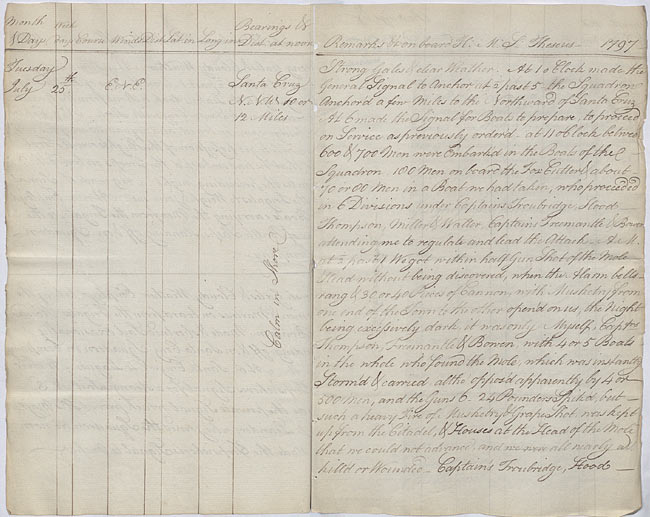 Month & Days Week day Course Winds Dist Lat in Long in Bearings & Dist. at noon
Tuesday
July 25th E N E Santa Cruz
N.N.W. 10 or
12 Miles
Calm in Shore
Remarks &c on board H. M. S. Theseus 1797
Strong Gales & clear Weather. At 1 oClock made the
General Signal to Anchor at ½ past 5 the Squadron
Anchord a few Miles to the Northward of Santa Cruz
At 6 made the Signal for Boats to prepare to proceed
on Service as previously orderd. at 11 oClock between
600 & 700 Men were Embarkd in the Boats of the
Squadron 180 Men on board the Fox Cutter & about
70 or 80 Men in a Boat we had taken, who proceeded
in 6 Divisions under Captains Troubridge, Hood
Thompson, Miller & Waller, Captains Freemantle & Bowen
attending me to regulate and lead the Attack A.M.
at ½ past 1 We got within half Gun Shot of the Mole
Head without being discovered, when the Alarm bells
rang & 30 or 40 Pieces of Cannon, with Musketry from
one end of the Town to the other opend on us, the Night
being excessively dark, it was only Myself, Captns
Thompson, Freemantle & Bowen with 4 or 5 Boats
in the whole who found the Mole, which was instantly
Stormd & carried altho opposd apparently by 4 or
500 Men, and the Guns 6 24 Pounders Spiked, but
such a heavy Fire of Musketry & Grape Shot was kept
up from the Citadel, & Houses at the Head of the Mole
that we could not advance, and we were all nearly
killd or Wounded Captains Troubridge, Hood